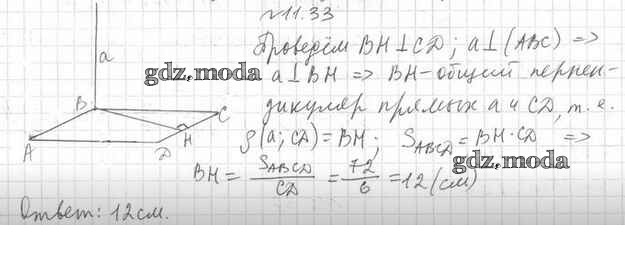 №11.33
Проведём BH⊥CD; a⊥(ABC) =>
a⊥BH => BH-общий перпен-
дикуляр прямых a и CD, т. е.
ρ(a; CD) = BH; S_ABCD = BH·CD =>
BH = S_ABCD/CD = 72/6 = 12 (см)
Ответ: 12см.
a
B
C
A
D
H
gdz.moda
gdz.moda